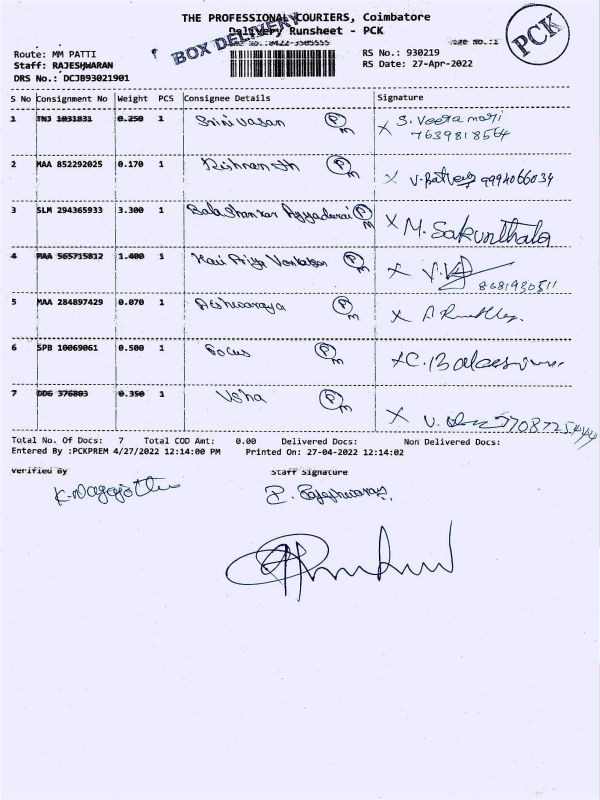 THE PROFESSIONAL COURIERS, Coimbatore
Delivery Runsheet - PCK
BOX DELIVERY
PCK
Page No.:1
Route: MM PATTI
Staff: RAJESHWARAN
DRS No.: DCJB93021901
RS No.: 930219
RS Date: 27-Apr-2022
S No Consignment No Weight PCS Consignee Details Signature
1 TNJ 1031831 0.250 1 Srinivasan PM X S. Veeramani
7639818564
2 MAA 852292025 0.170 1 PM X 9994066034
3 SLM 294365933 3.300 1 Balashankar Ayyadurai PM X M. Sakunthala
4 MAA 565715812 1.400 1 Hari Priya Venkatesan PM X
8681930511
5 MAA 284897429 0.070 1 Aishwaraya PM X
6 SPB 10069061 0.500 1 Focus PM X
7 DDG 376803 0.350 1 Usha PM X
Total No. Of Docs: 7 Total COD Amt: 0.00 Delivered Docs: Non Delivered Docs:
Entered By :PCKPREM 4/27/2022 12:14:00 PM Printed On: 27-04-2022 12:14:02
Verified By Staff Signature